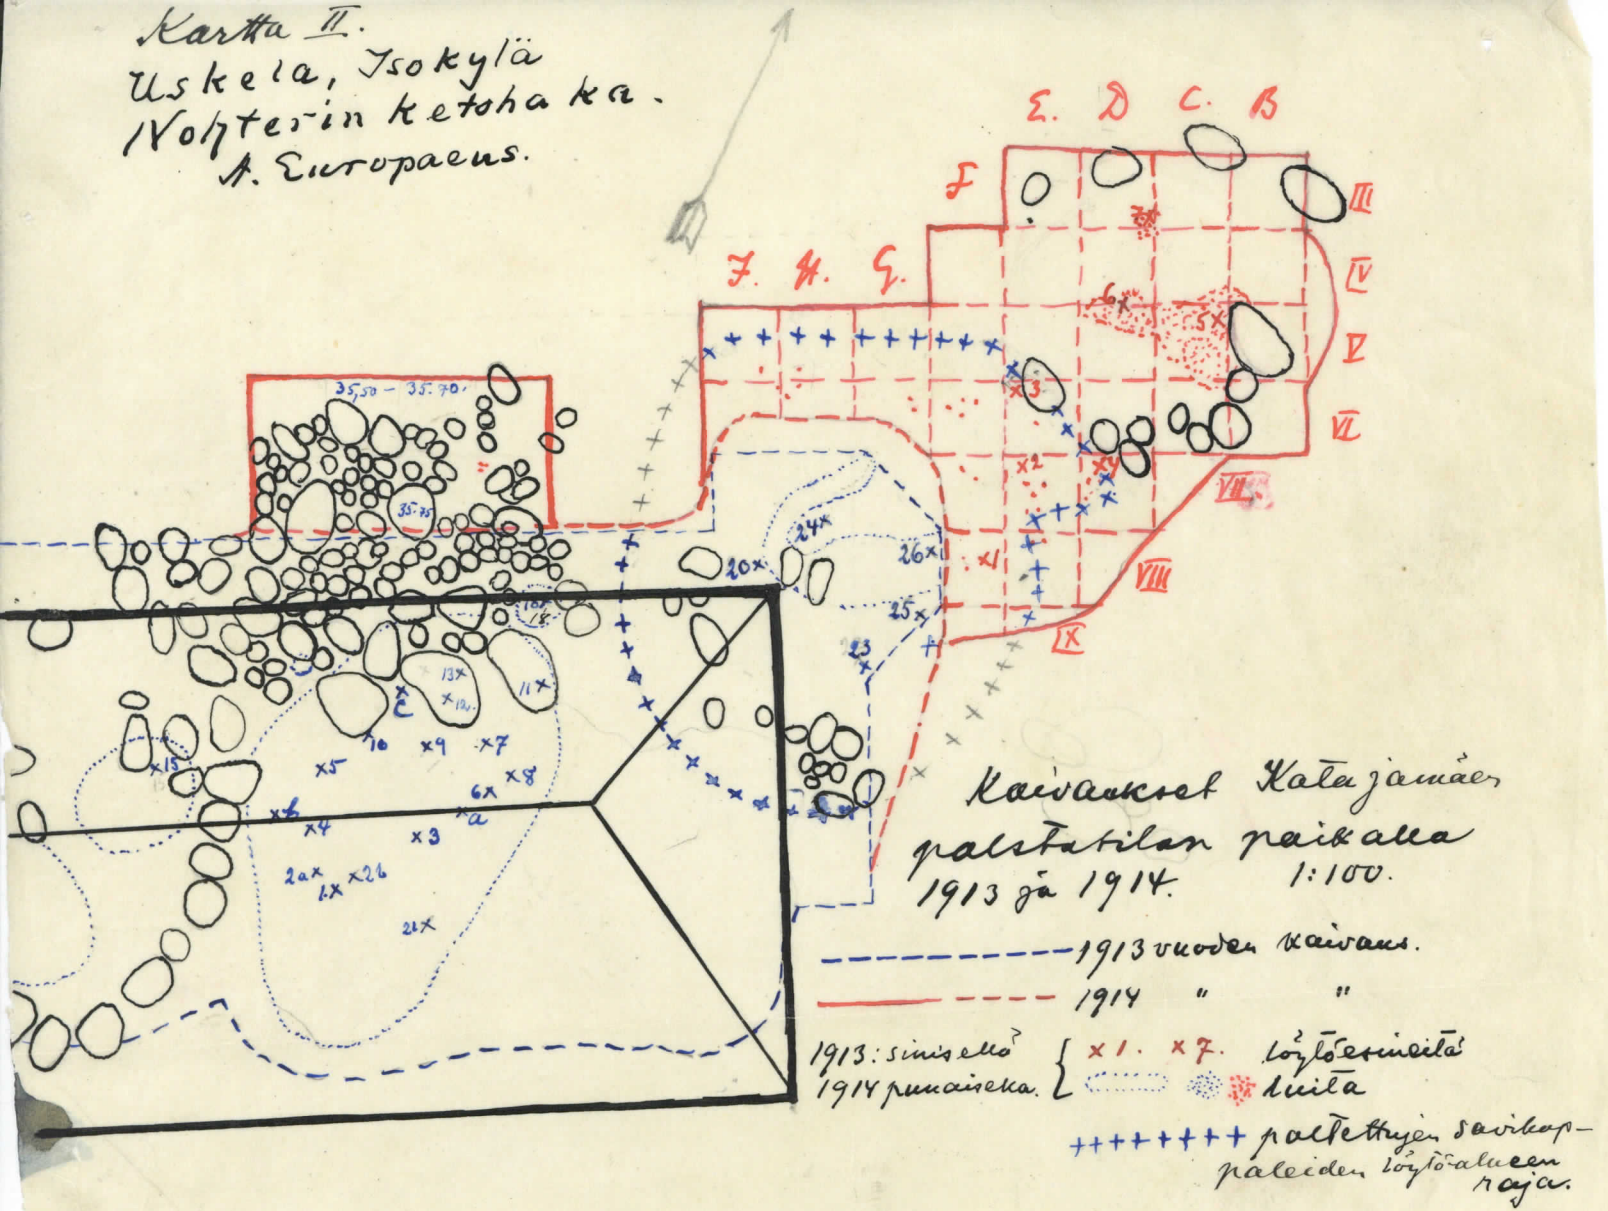 Kartta II.
Uskela, Isokylä
Nohterin ketohaka.
A. Europaeus.
E. D C. B
F
III
J. H. G.
IV
7x
6x
5x
V
35,50 – 35.70.
x3
VI
x2 x4
VII
35.75
24x
20x
26x
x1
VIII
18
25x
23
IX
13x
x12
11x
c
10
x9 x7
x15
x5
x8
6x
xb
a
x4
x3
2ax x2b
1x
21x
Kaivaukset Katajamäen
palstatilan paikalla
1913 ja 1914. 1:100.
1913 vuoden kaivaus.
1914 " "
1913: sinisellä
1914 punaisella.
x1. x7. löytöesineitä
luita
poltettujen savikap-
paleiden löytöalueen
raja.